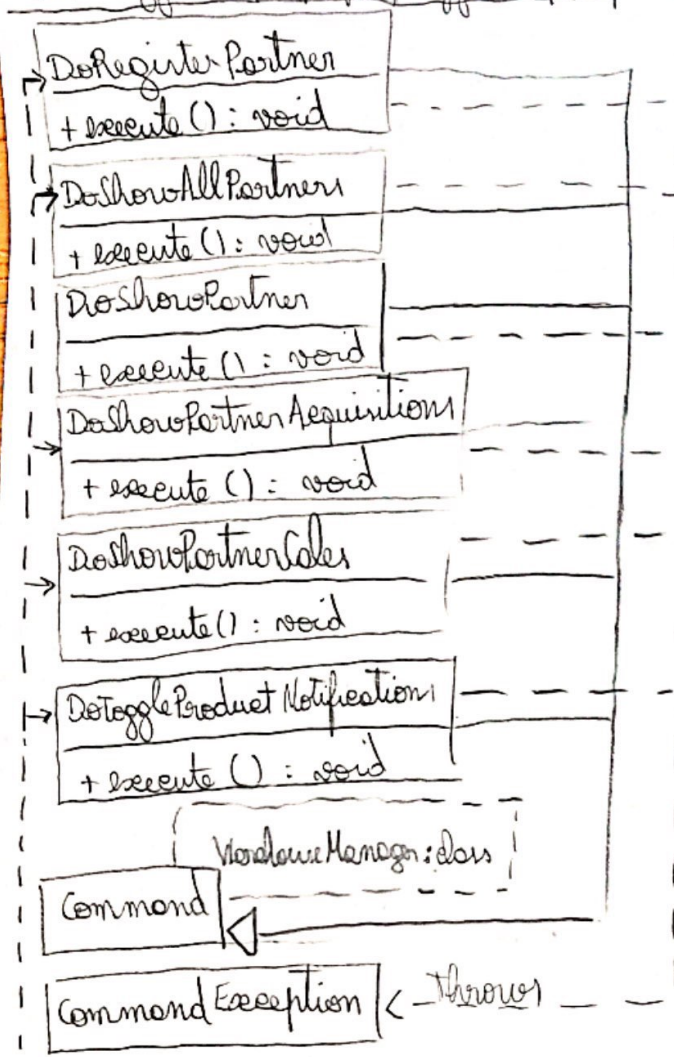 DoRegisterPartner
+ execute () : void
DoShowAllPartners
+ execute () : void
DoShowPartner
+ execute () : void
DoShowPartnerAcquisitions
+ execute () : void
DoShowPartnerSales
+ execute () : void
DoToggleProductNotifications
+ execute () : void
WarehouseManager : class
Command
CommandException
Throws